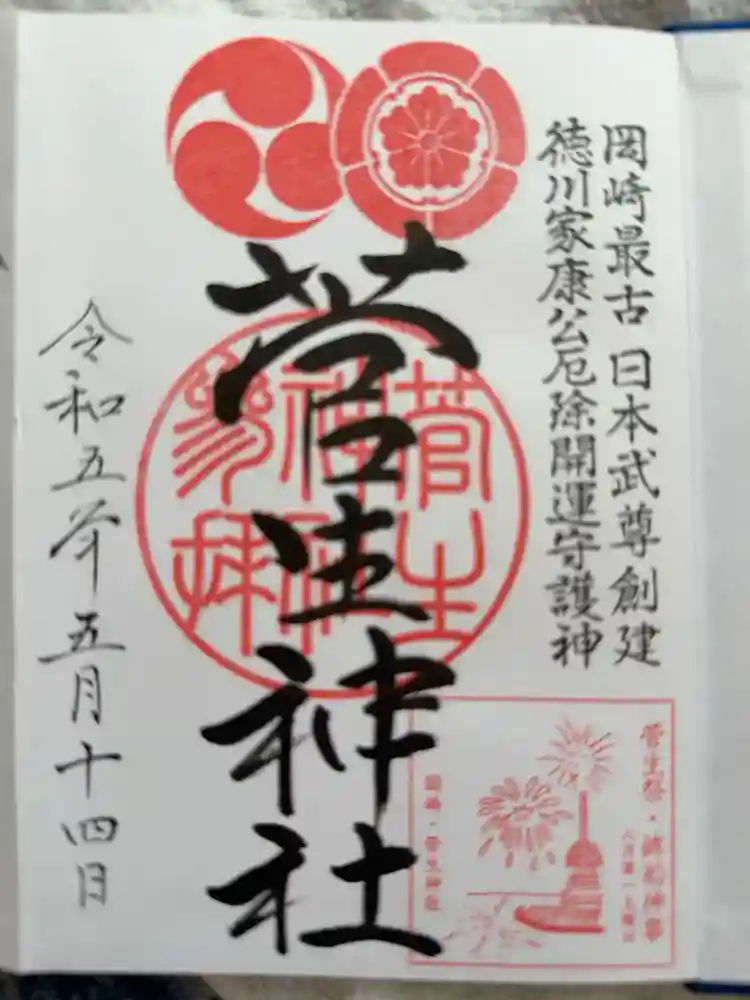 岡崎最古 日本武尊創建
徳川家康公厄除開運守護神
菅生神社
菅生
神社
参拝
令和五年五月十四日
菅生祭・鉾船神事
岡崎・菅生神社